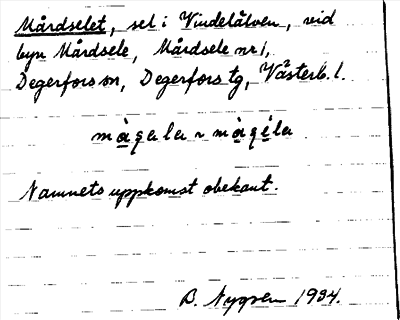 Mårdselet, sel i Vindelälven, vid
byn Mårdsele, Mårdsele nr 1,
Degerfors sn, Degerfors tg, Västerb. l.
màqala ~ màqéla
Namnets uppkomst obekant.
B. Nygren 1934.